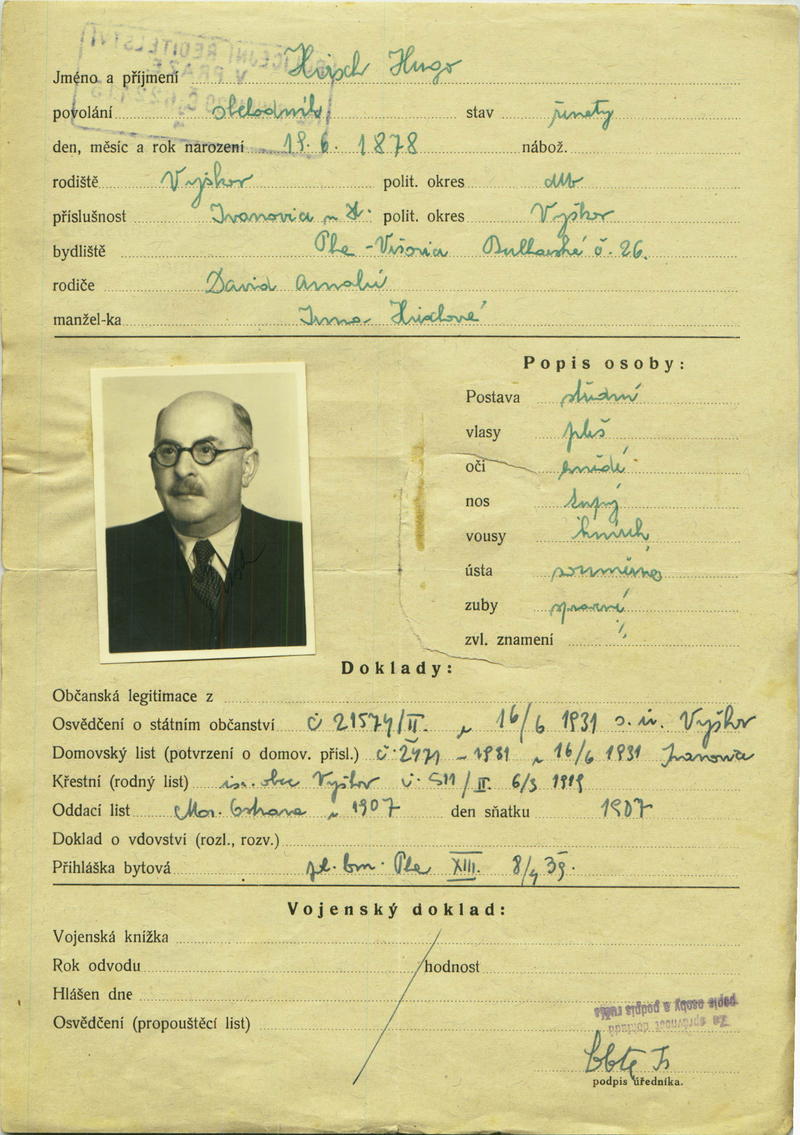 Jméno a příjmení Hirsch Hugo
povolání obchodník stav ženatý
den, měsíc a rok narození 19. 6. 1878 nábož.
rodiště Vyškov polit. okres dtto
příslušnost Ivanovice n H. polit. okres Vyškov
bydliště Pha - Vršovice Bulharská č. 26.
rodiče David Amalie
manžel-ka Irma Hirschová
Popis osoby:
Postava střední
vlasy pleš
oči hnědé
nos tupý
vousy knírek
ústa souměrná
zuby správné
zvl. znamení
Doklady:
Občanská legitimace z
Osvědčení o státním občanství č 21574/II. z 16/6 1931 o. ú. Vyškov
Domovský list (potvrzení o domov. přísl.) č. 2471 - 1931 z 16/6 1931 Ivanovice
Křestní (rodný list) isr. obec Vyškov č. 511/II. 6/3 1919
Oddací list Mor. Ostrava z 1907 den sňatku 1907
Doklad o vdovství (rozl., rozv.)
Přihláška bytová pl. kom. Pha XIII. 8/4 39.
Vojenský doklad:
Vojenská knížka
Rok odvodu hodnost
Hlášen dne
Osvědčení (propouštěcí list)
Za správnost dokladů
popis osoby a podpis ručí:
podpis úředníka.